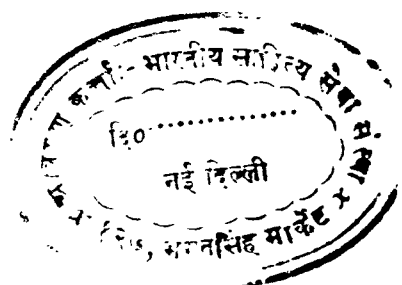 कर्त्ताः- भारतीय साहित्य सेवा संस्था ×
दि० ....................
नई दिल्ली
भगतसिंह मार्केट ×